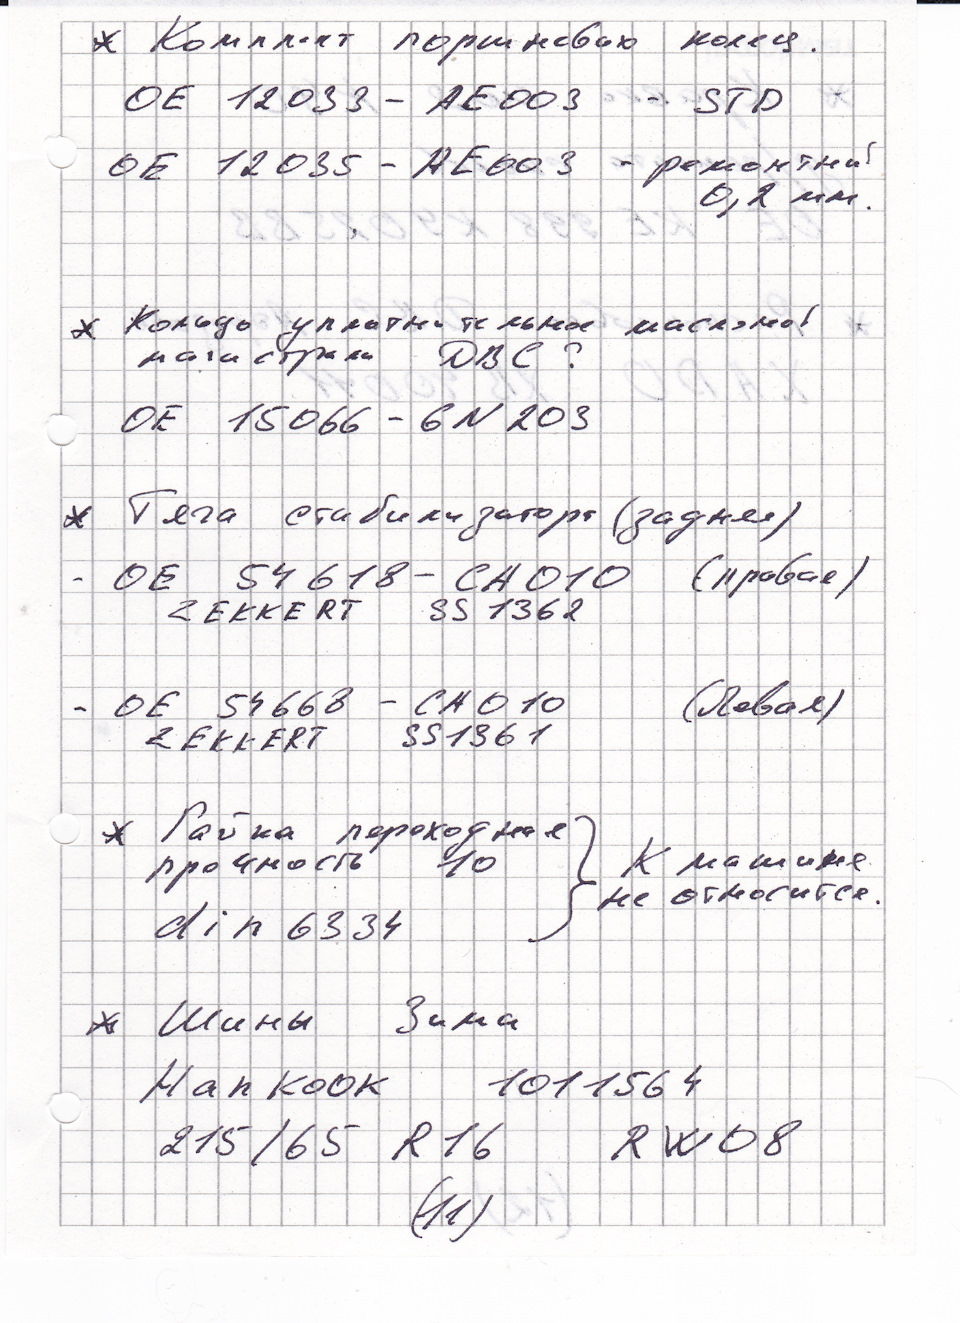 * Комплект поршневых колец.
OE 12033 - AE003 - STD
OE 12035 - AE003 - ремонтный
0,2 мм.
* Кольцо уплотнительное масляной
магистрали ДВС?
OE 15066 - 6N203
* Тяга стабилизатора (задняя)
- OE 54618 - CA010 (правая)
ZEKKERT SS1362
- OE 54668 - CA010 (левая)
ZEKKERT SS1361
* Гайка переходная
прочность 10
din 6334
К машине
не относится.
* Шины Зима
Hankook 1011564
215/65 R16 RW08
(11)